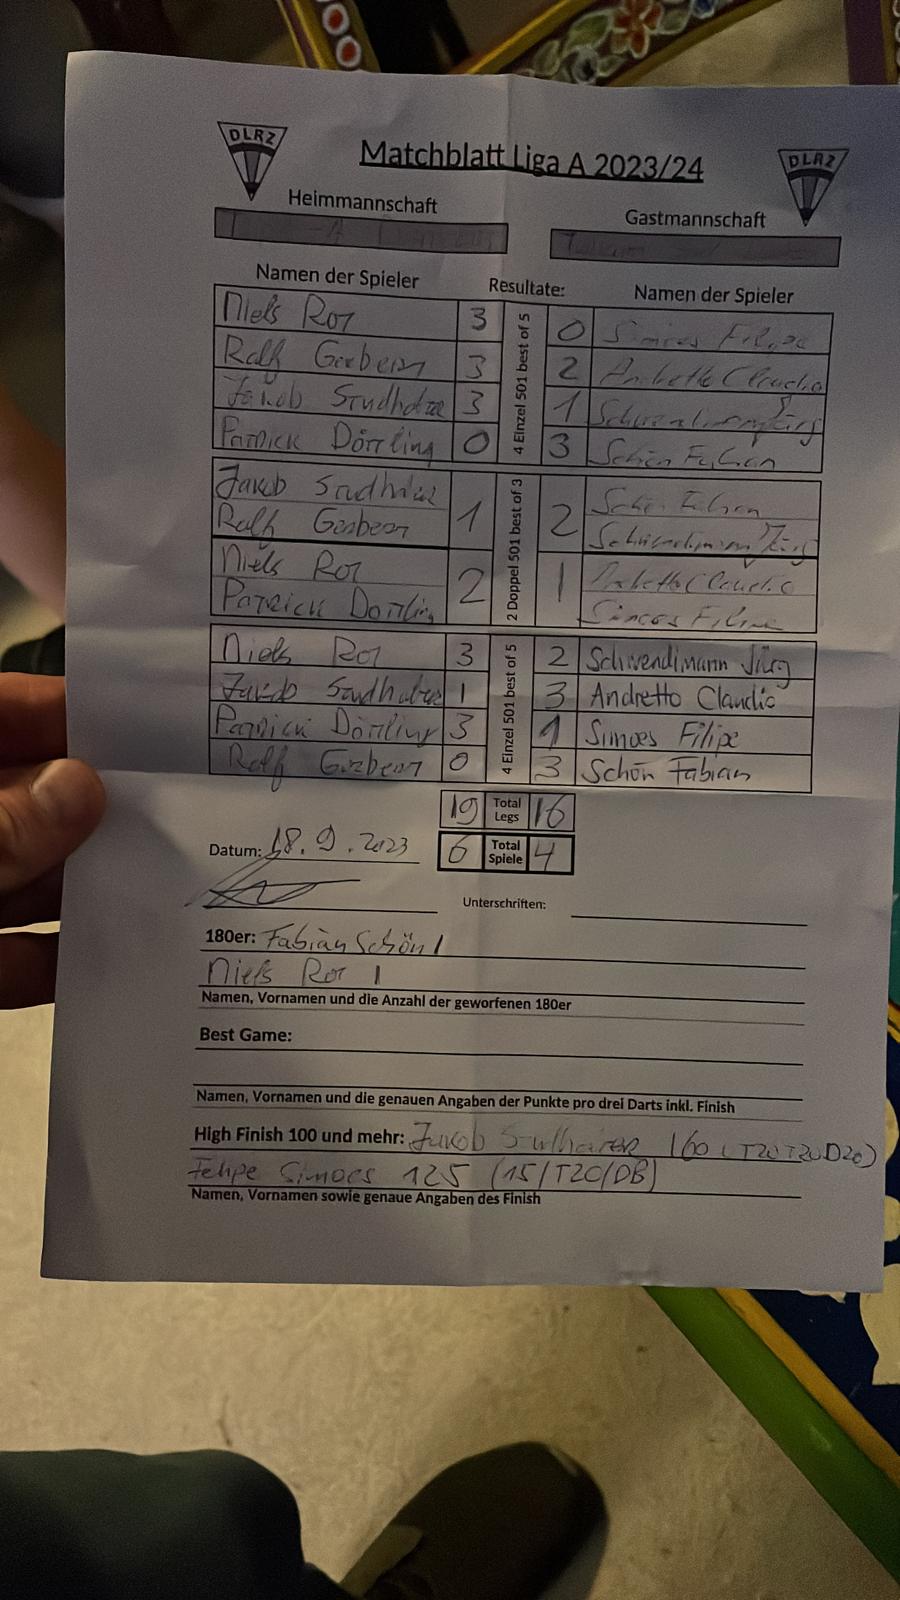 DLRZ
Matchblatt Liga A 2023/24
DLRZ
Heimmannschaft
Gastmannschaft
Namen der Spieler
Resultate:
Namen der Spieler
Niels Ror 3 0 Simoes Filipe
Ralf Gerbern 3 2 Andretto Claudio
Jakob 3 1 Schwendimann Jürg
Patrick Dörrling 0 3 Schön Fabian
4 Einzel 501 best of 5
Jakob 1 2 Schön Fabian
Ralf Schwendimann Jürg
Niels Ror 2 1 Andretto Claudio
Patrick Dörrling Simoes Filipe
2 Doppel 501 best of 3
Niels Ror 3 2 Schwendimann Jürg
1 3 Andretto Claudio
Patrick Dörrling 3 1 Simoes Filipe
Ralf 0 3 Schön Fabian
4 Einzel 501 best of 5
19 Total Legs 16
Datum: 18.9.2023
6 Total Spiele 4
Unterschriften:
180er: Fabian Schön 1
Niels Ror 1
Namen, Vornamen und die Anzahl der geworfenen 180er
Best Game:
Namen, Vornamen und die genauen Angaben der Punkte pro drei Darts inkl. Finish
High Finish 100 und mehr: Jakob 160 (T20 T20 D20)
Felipe Simoes 125 (15/T20/DB)
Namen, Vornamen sowie genaue Angaben des Finish